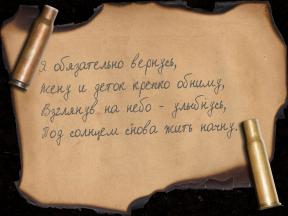 Я обязательно вернусь,
Жену и деток крепко обниму,
Взглянув на небо - улыбнусь,
Под солнцем снова жить начну.